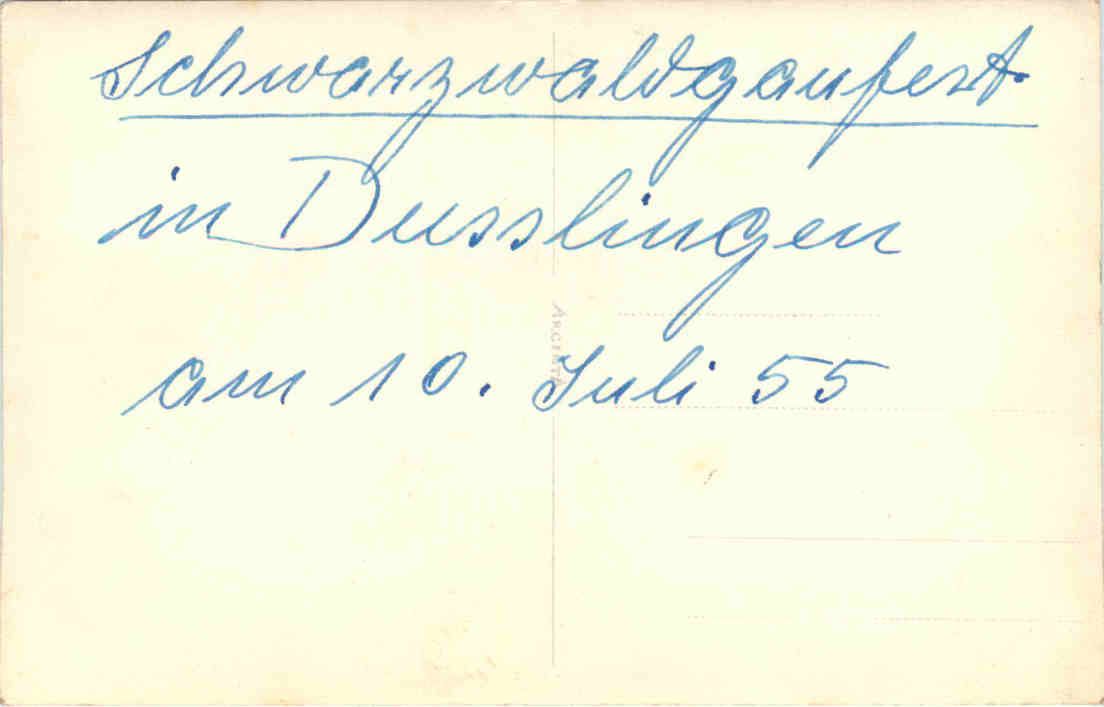 Schwarzwaldgaufest
in Dusslingen
am 10. Juli 55
ARGENTA